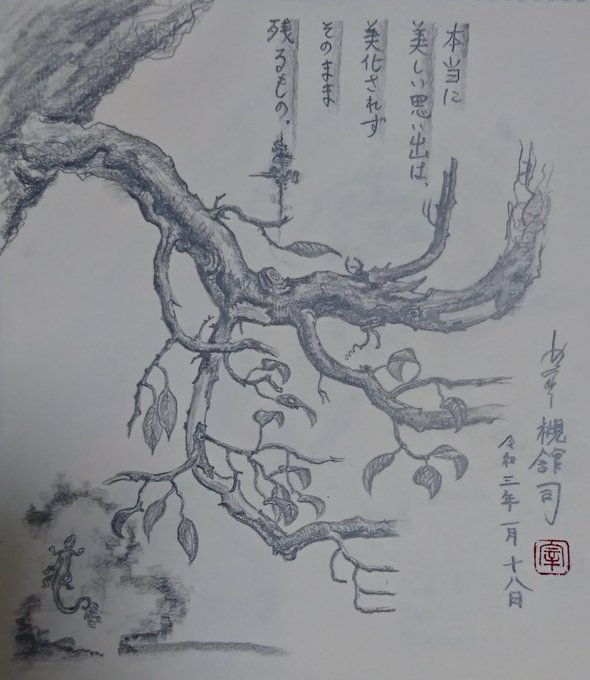 本当に
美しい思い出は、
美化されず
そのまま
残るもの。
槻舘司
令和三年一月十八日